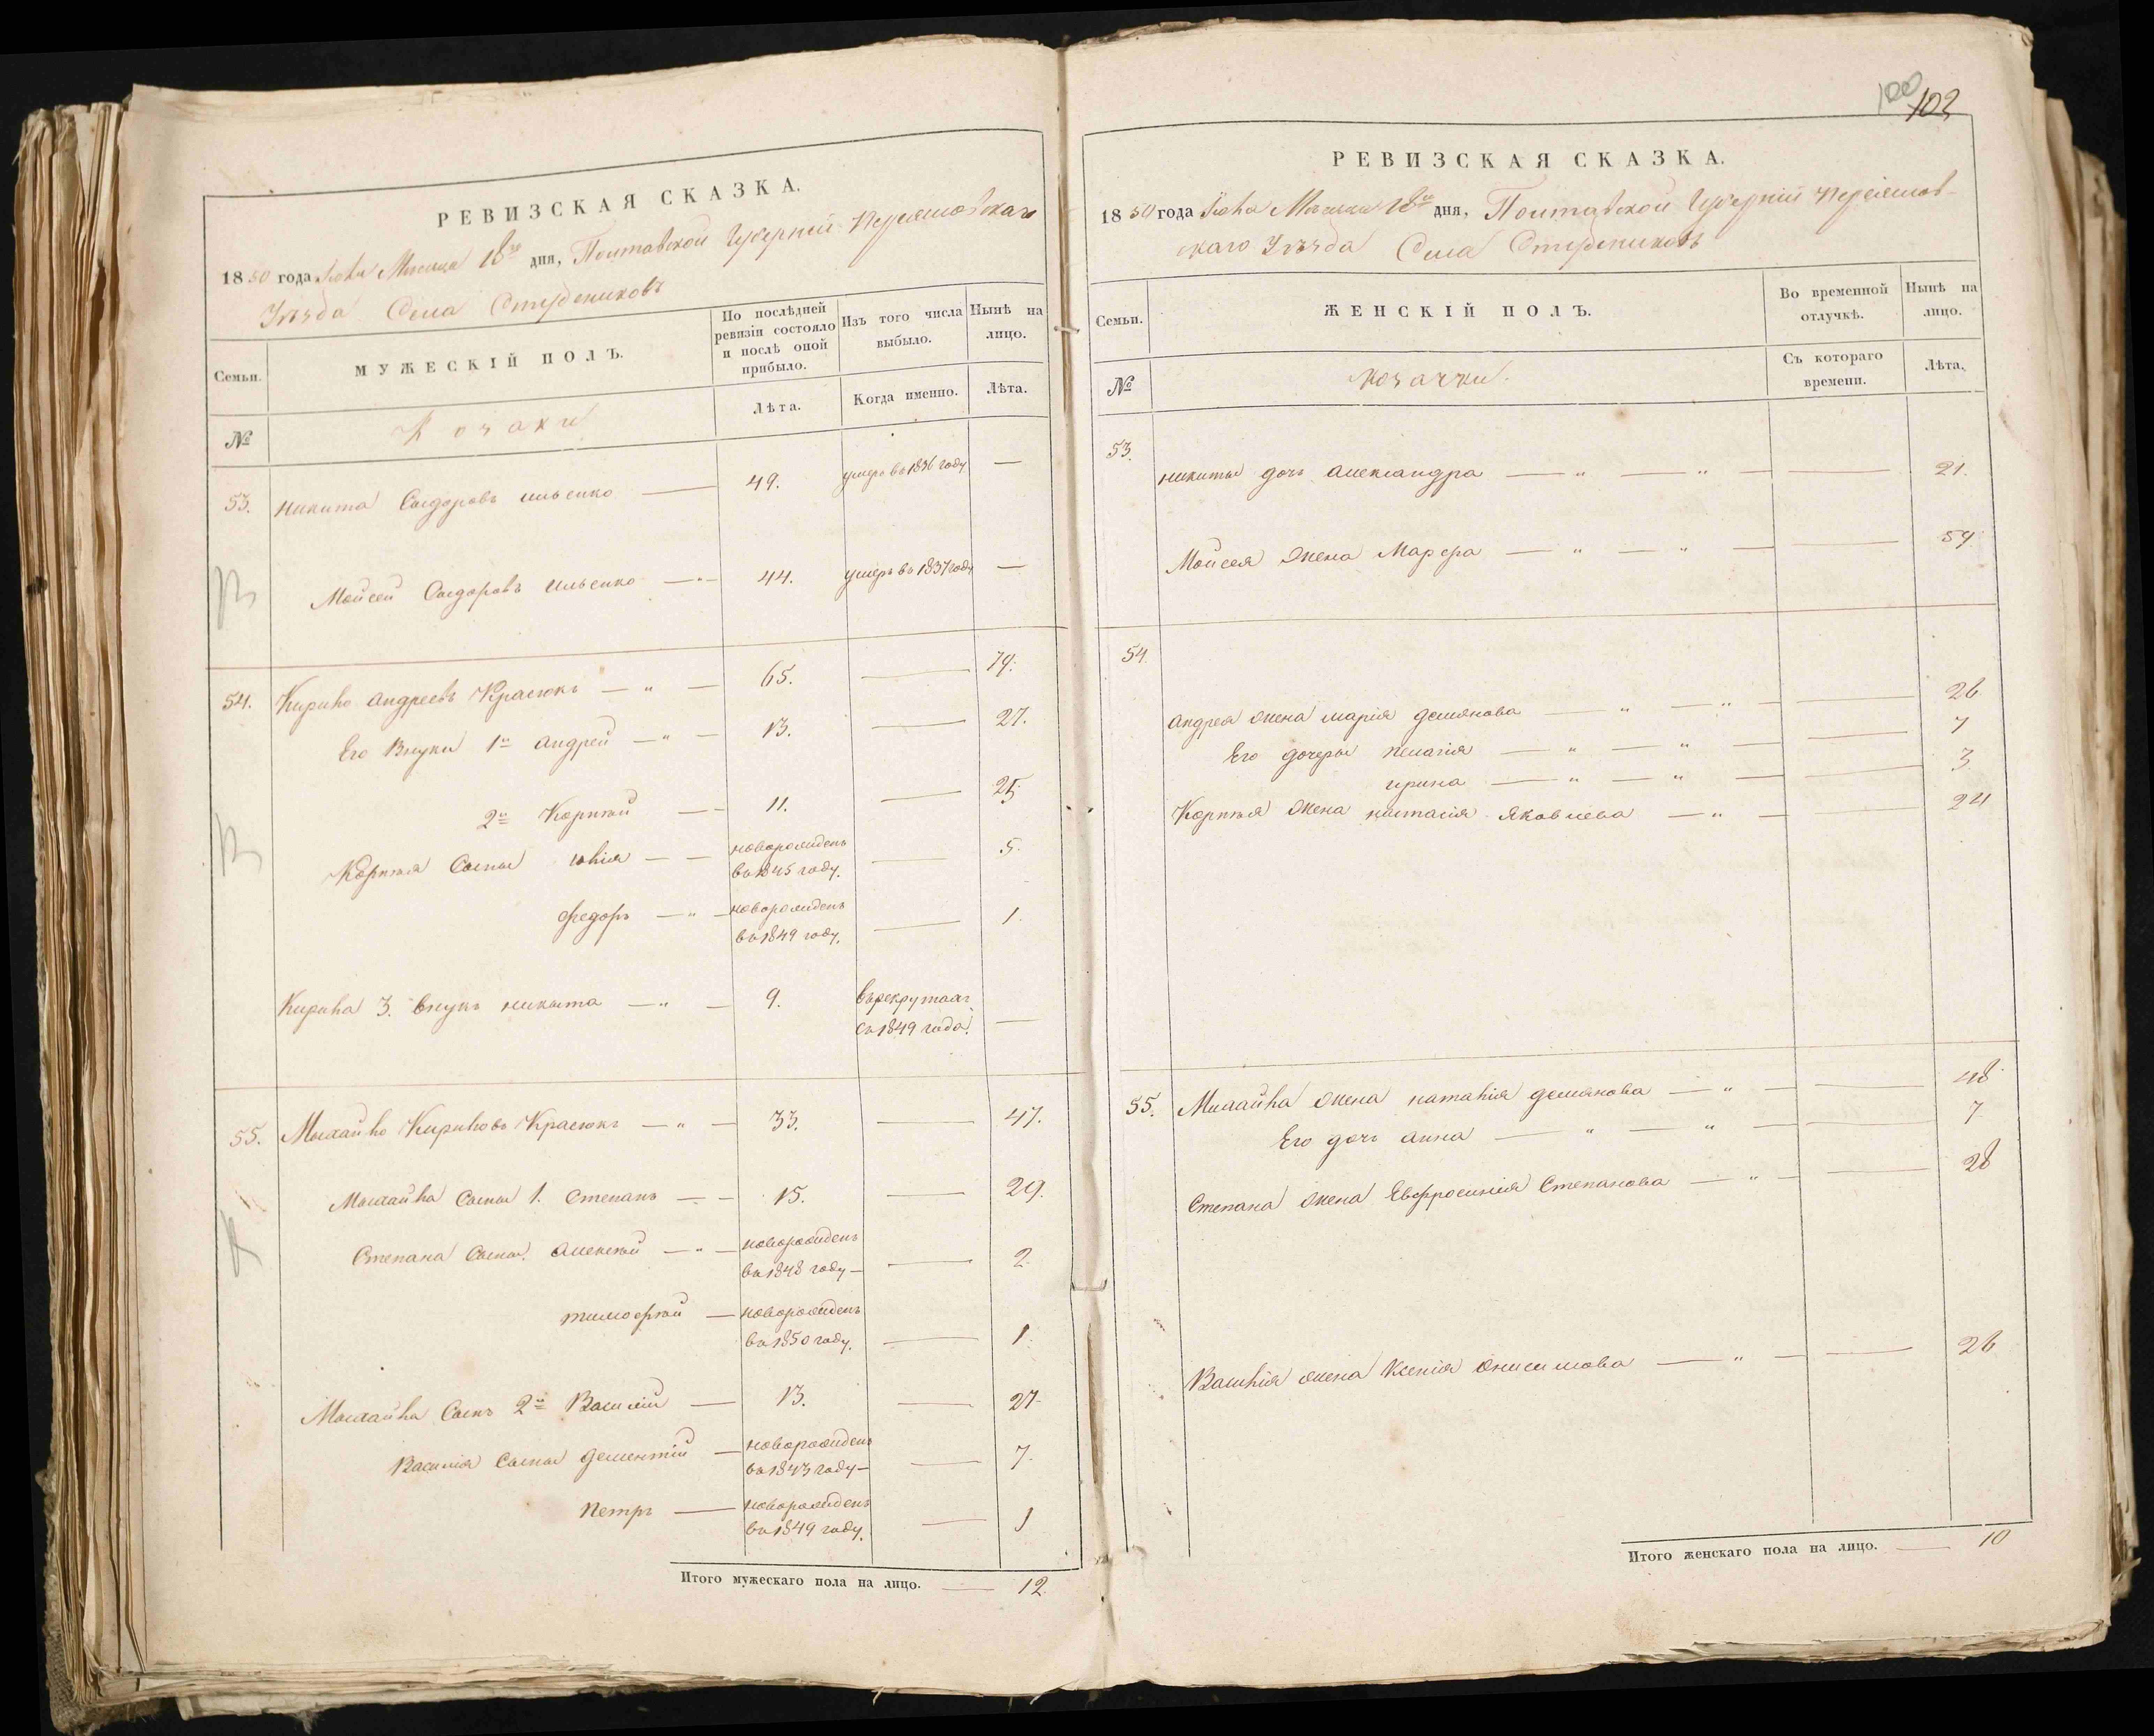 РЕВИЗСКАЯ СКАЗКА.
1850 года Июля Месяца 18го дня, Полтавской Губерніи Переяславскаго
Уѣзда Села Студениковъ
Семьи.
МУЖЕСКІЙ ПОЛЪ.
По послѣдней ревизіи состояло и послѣ оной прибыло.
Изъ того числа выбыло.
Нынѣ на лицо.
№
Козаки
Лѣта.
Когда именно.
Лѣта.
53. Никита Сидоровъ Ильенко — 49. умеръ въ 1836 году —
Мойсей Сидоровъ Ильенко — „ — 44. умеръ въ 1837 году —
54. Кирило Андреевъ Красюкъ — „ — 65. — 79.
Его Внуки 1й Андрей — „ — 13. — 27.
2й Корнѣй — — 11. — 25
Корнѣя Сыны — — новорожденъ
въ 1845 году. — 5.
Федоръ — „ — новорожденъ
въ 1849 году. — 1.
Кирила 3. внукъ Никита — „ — 9. въ рекрутахъ
съ 1849 года. —
55. Михайло Кириловъ Красюкъ — „ — 33. — 47.
Михайла Сыны 1. Степанъ — — 15. — 29.
Степана Сыны. Алексѣй — „ — новорожденъ
въ 1848 году — — 2.
Тимофѣй — новорожденъ
въ 1850 году. — 1.
Михайла Сынъ 2й Василій — 13. — 27.
Василія Сыны Дементій — новорожденъ
въ 1843 году — — 7.
Петръ — новорожденъ
въ 1849 году. — 1
Итого мужескаго пола на лицо. — 12.
100
102
РЕВИЗСКАЯ СКАЗКА.
1850 года Июля Месяца 18го дня, Полтавской Губерніи Переяслав-
скаго Уѣзда Села Студениковъ
Семьи.
ЖЕНСКІЙ ПОЛЪ.
Во временной отлучкѣ.
Нынѣ на лицо.
№
Козачки.
Съ котораго времени.
Лѣта.
53. Никиты дочь Александра — „ — „ — — 21.
Мойсея Жена Марфа — „ — „ — — 59.
54.
Андрея Жена Марія Демянова — „ — „ — — 26
Его дочеры Пелагія — „ — „ — 7
Ирина — „ — „ — — 3
Корнѣя Жена Яковлева — „ — — 24
55. Михайла Жена Наталія Демянова — „ — — 48.
Его дочь Анна — „ — „ — — 7
Степана Жена Евфросинія Степанова — „ — — 28
Василія Жена Ксенія Онисимова — „ — — 26
Итого женскаго пола на лицо. — 10